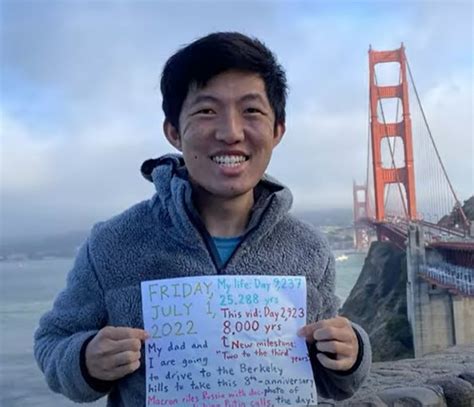 FRIDAY,
JULY 1,
2022
My life: Day 9,237
25.288 yrs
This vid: Day 2,923
8,000 yrs
New milestone:
"Two to the third"
My dad and
I are going
to drive to the Berkeley
hills to take this 8th-anniversary
photo of
Macron riles Russia with doc
Putin calls, the day!